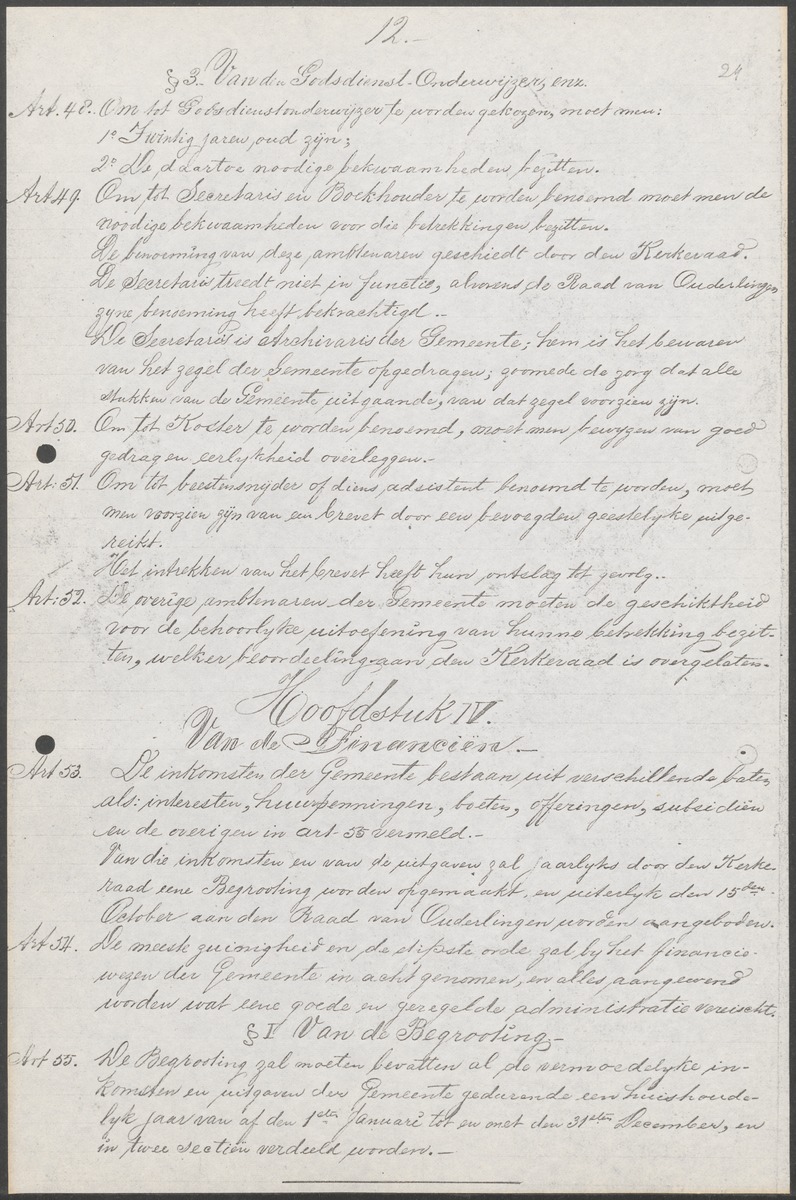 12.-
24
§ 3. Van den Godsdienst-Onderwijzer, enz.
Art. 48. Om tot Godsdienstonderwijzer te worden gekozen, moet men:
1° Twintig jaren oud zijn;
2° De daartoe noodige bekwaamheden bezitten.
Art 49. Om tot Secretaris en Boekhouder te worden benoemd moet men de
noodige bekwaamheden voor die betrekkingen bezitten.
De benoeming van deze ambtenaren geschiedt door den Kerkeraad.
De Secretaris treedt niet in functie, alvorens de Raad van Ouderlingen
zyne benoeming heeft bekrachtigd..
De Secretaris is Archivaris der Gemeente; hem is het bewaren
van het zegel der Gemeente opgedragen; zoomede de zorg dat alle
stukken van de Gemeente uitgaande, van dat zegel voorzien zijn.
Art 50. Om tot Koster te worden benoemd, moet men bewyzen van goed
gedrag en eerlykheid overleggen.-
Art: 51. Om tot beestensnijder of diens adsistent benoemd te worden, moet
men voorzien zijn van een brevet door een bevoegden geestelyke uitge-
reikt.
Het intrekken van het brevet heeft hun ontslag tot gevolg..
Art: 52. De overige ambtenaren der Gemeente moeten de geschiktheid
voor de behoorlyke uitoefening van hunne betrekking bezit-
ten, welker beoordeeling aan den Kerkeraad is overgelaten.
Hoofdstuk IV.
Van de Financiën.-
Art 53. De inkomsten der Gemeente bestaan uit verschillende baten
als: interesten, huurpenningen, boeten, offeringen, subsidiën
en de overigen in art 55 vermeld.-
Van die inkomsten en van de uitgaven zal jaarlyks door den Kerke-
raad eene Begrooting worden opgemaakt, en uiterlyk den 15den
October aan den Raad van Ouderlingen worden aangeboden.
Art 54. De meeste zuinigheid en de stipste orde zal by het financie-
wezen der Gemeente in acht genomen, en alles aangewend
worden wat eene goede en geregelde administratie vereischt.
§ I Van de Begrooting.-
Art 55. De Begrooting zal moeten bevatten al de vermoedelyke in-
komsten en uitgaven der Gemeente gedurende een huishoude-
lyk jaar van af den 1sten Januari tot en met den 31sten December, en
in twee sectiën verdeeld worden.-